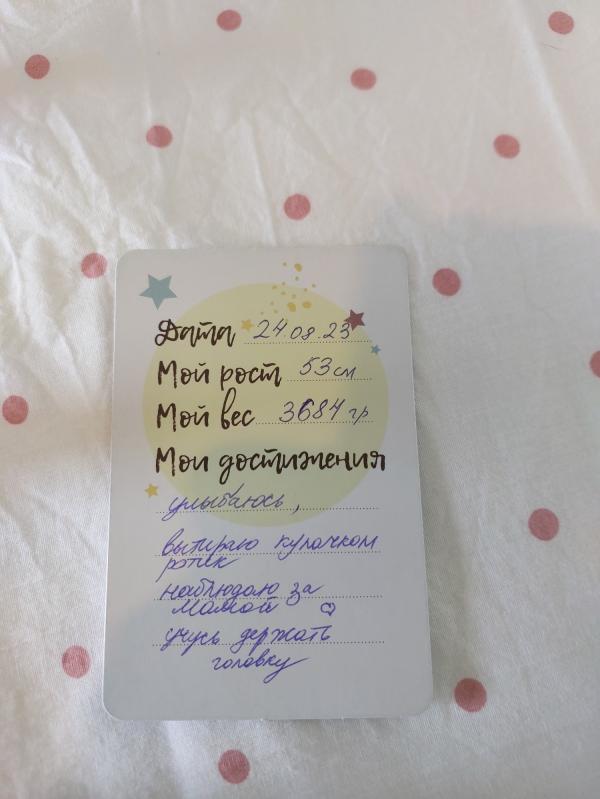 Дата 24.08.23
Мой рост 53 см
Мой вес 3684 гр
Мои достижения
улыбаюсь,
вытираю кулачком
ротик
наблюдаю за
мамой ♡
учусь держать
головку